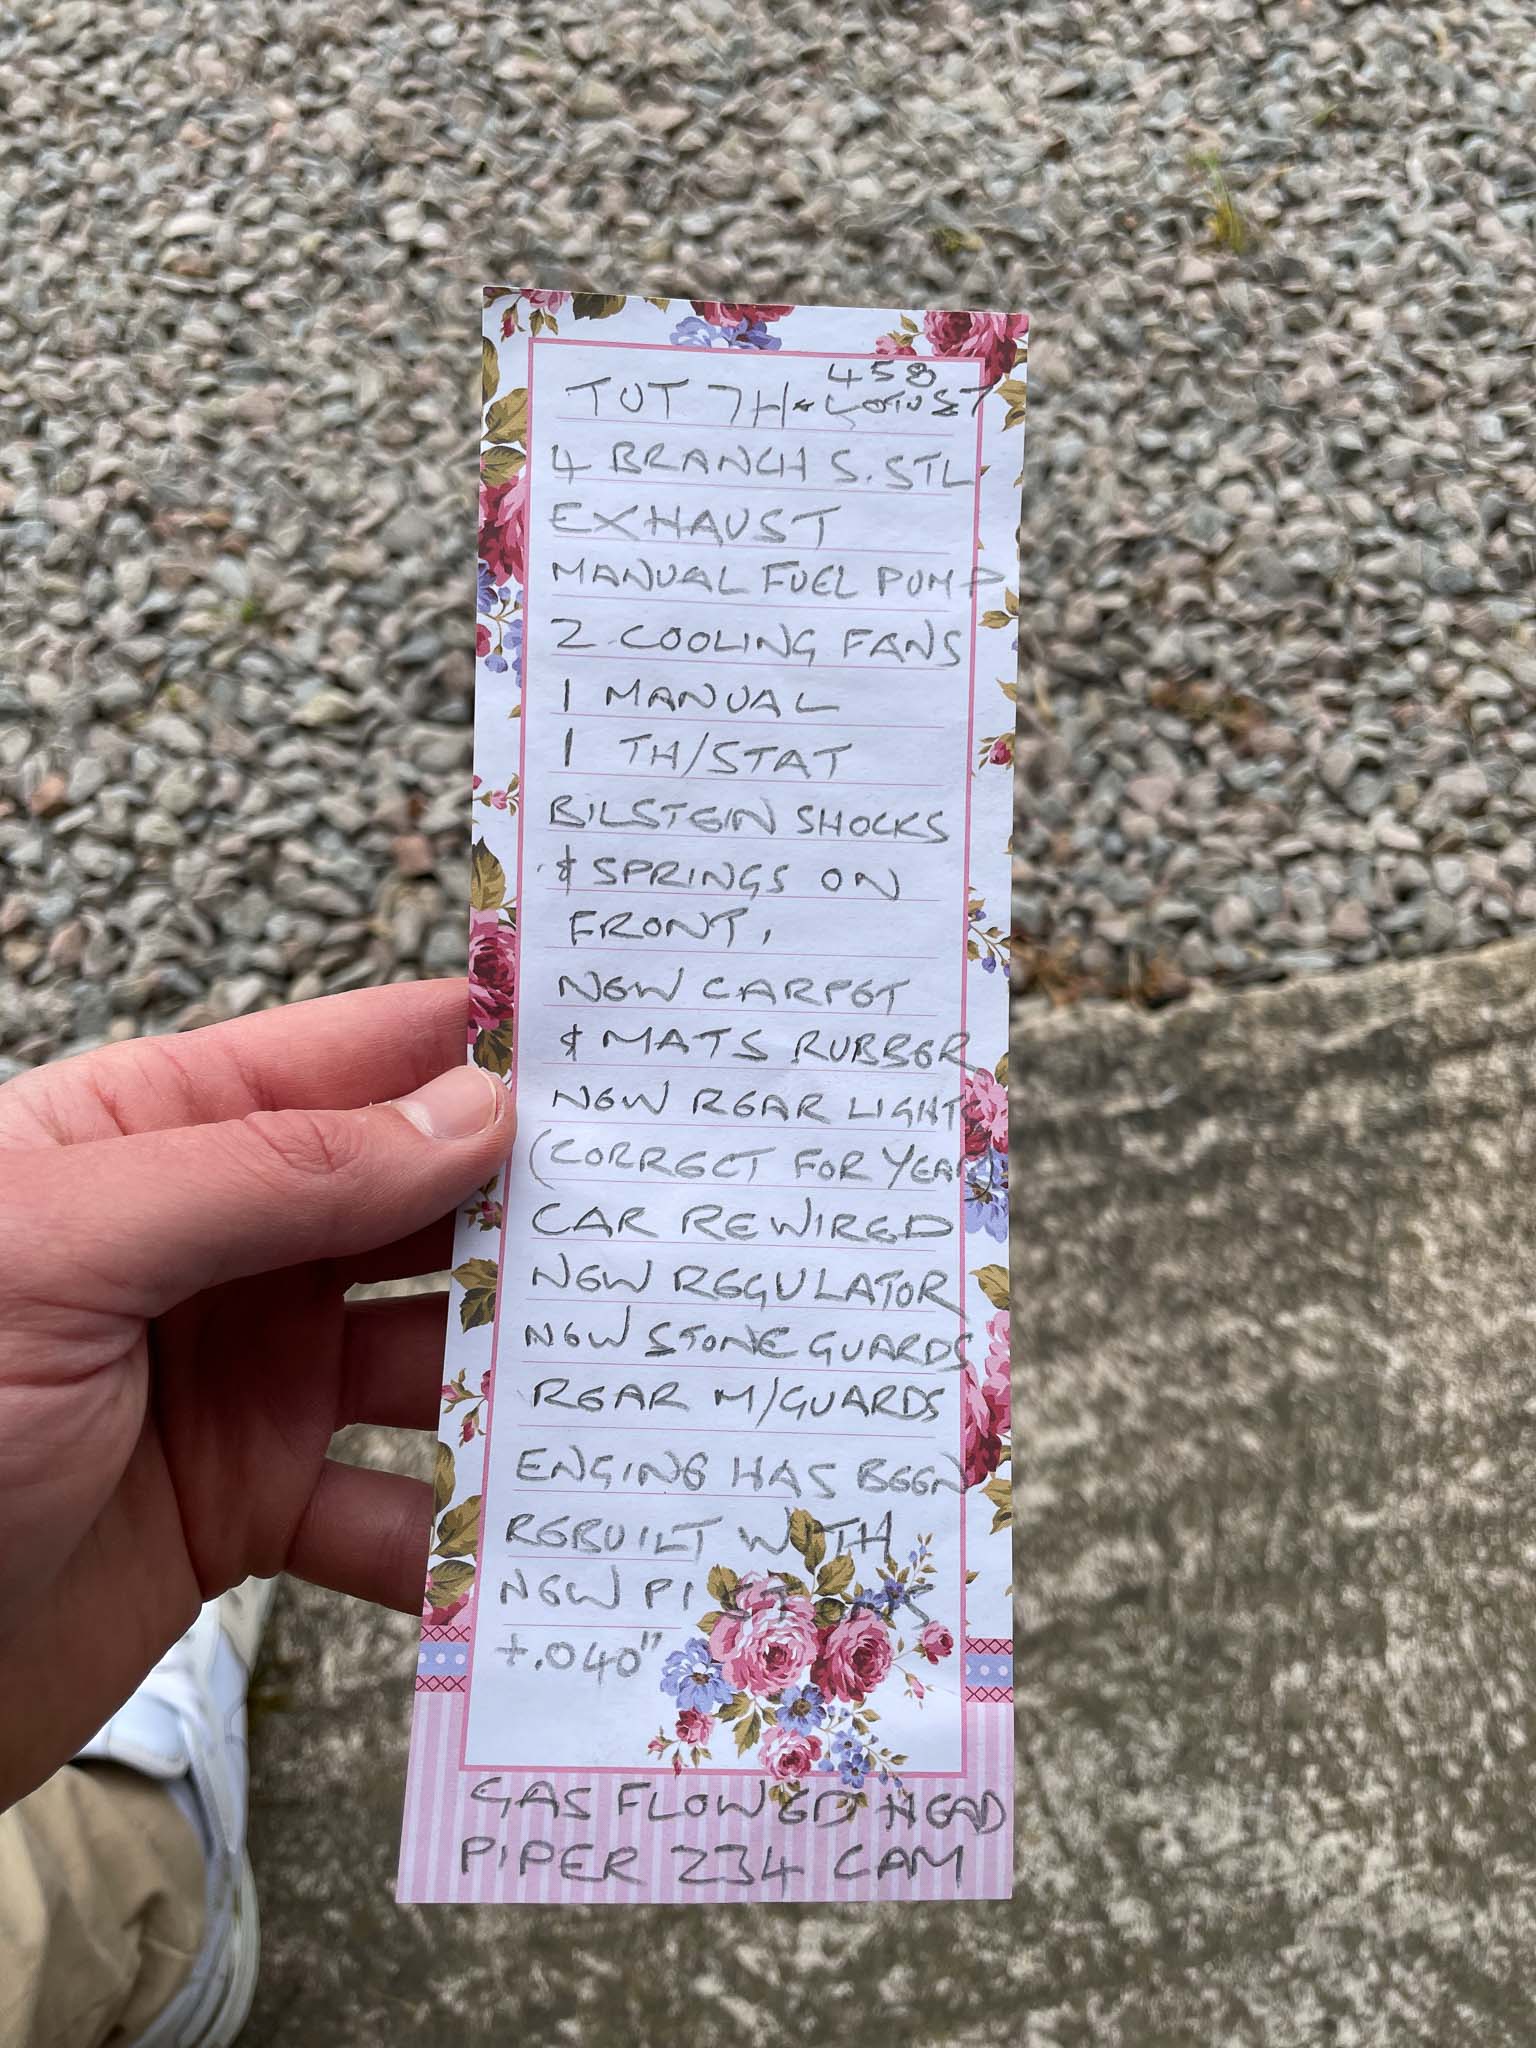 458
TUT 7H
4 BRANCH S.STL
EXHAUST
MANUAL FUEL PUMP
2 COOLING FANS
1 MANUAL
1 TH/STAT
BILSTEIN SHOCKS
& SPRINGS ON
FRONT,
NEW CARPET
& MATS RUBBER
NEW REAR LIGHTS
(CORRECT FOR YEAR)
CAR REWIRED
NEW REGULATOR
NEW STONE GUARDS
REAR M/GUARDS
ENGINE HAS BEEN
REBUILT WITH
NEW PISTONS
+.040"
GAS FLOWED HEAD
PIPER 234 CAM